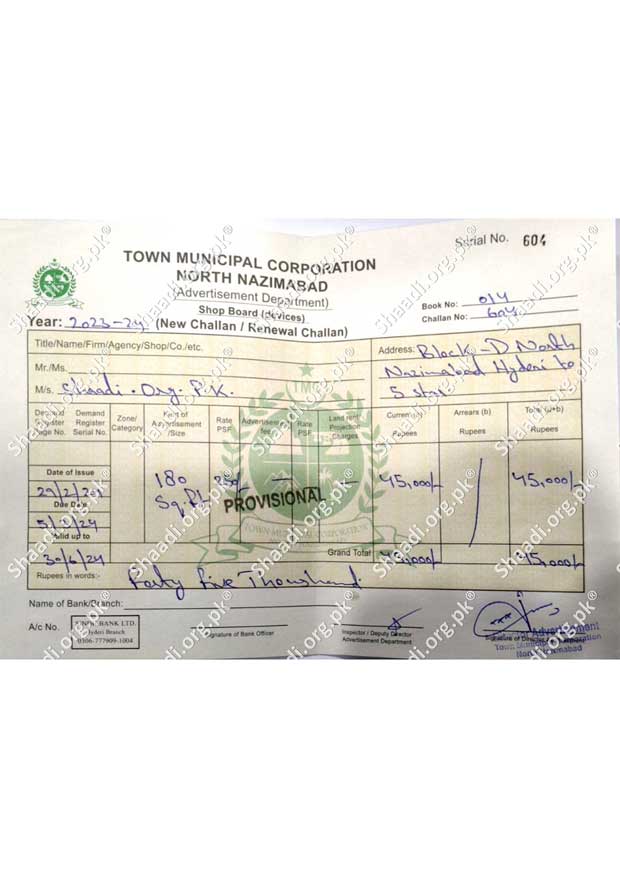 Serial No. 604
TOWN MUNICIPAL CORPORATION
NORTH NAZIMABAD
(Advertisement Department)
Shop Board (devices)
Book No: 014
Challan No: 604
Year: 2023-24 (New Challan / Renewal Challan)
Title/Name/Firm/Agency/Shop/Co./etc.
Address: Block-D North
Nazimabad Hyderi to
5 Star
Mr./Ms.
M/s. Shaadi.Org.P.K.
TMC
Demand Register Page No. Demand Register Serial No. Zone/ Category Kind of Advertisement /Size Rate PSF Advertisement fee Rate PSF Land rent Projection Charges Current (a) Rupees Arrears (b) Rupees Total (a+b) Rupees
Date of Issue
180 Sq.Ft 250/- - - 45,000/- / 45,000/-
Due Date
PROVISIONAL
TOWN MUNICIPAL CORPORATION
Valid up to
30/6/24
Grand Total 45,000/- 45,000/-
Rupees in words:- Forty five Thousand
Name of Bank/Branch:
A/c No. SINDH BANK LTD.
Hyderi Branch
0306-777909-1004
Signature of Bank Officer
Inspector / Deputy Director
Advertisement Department
Signature of Director
Advertisement
Town Municipal Corporation
North Nazimabad
Shaadi.org.pk®